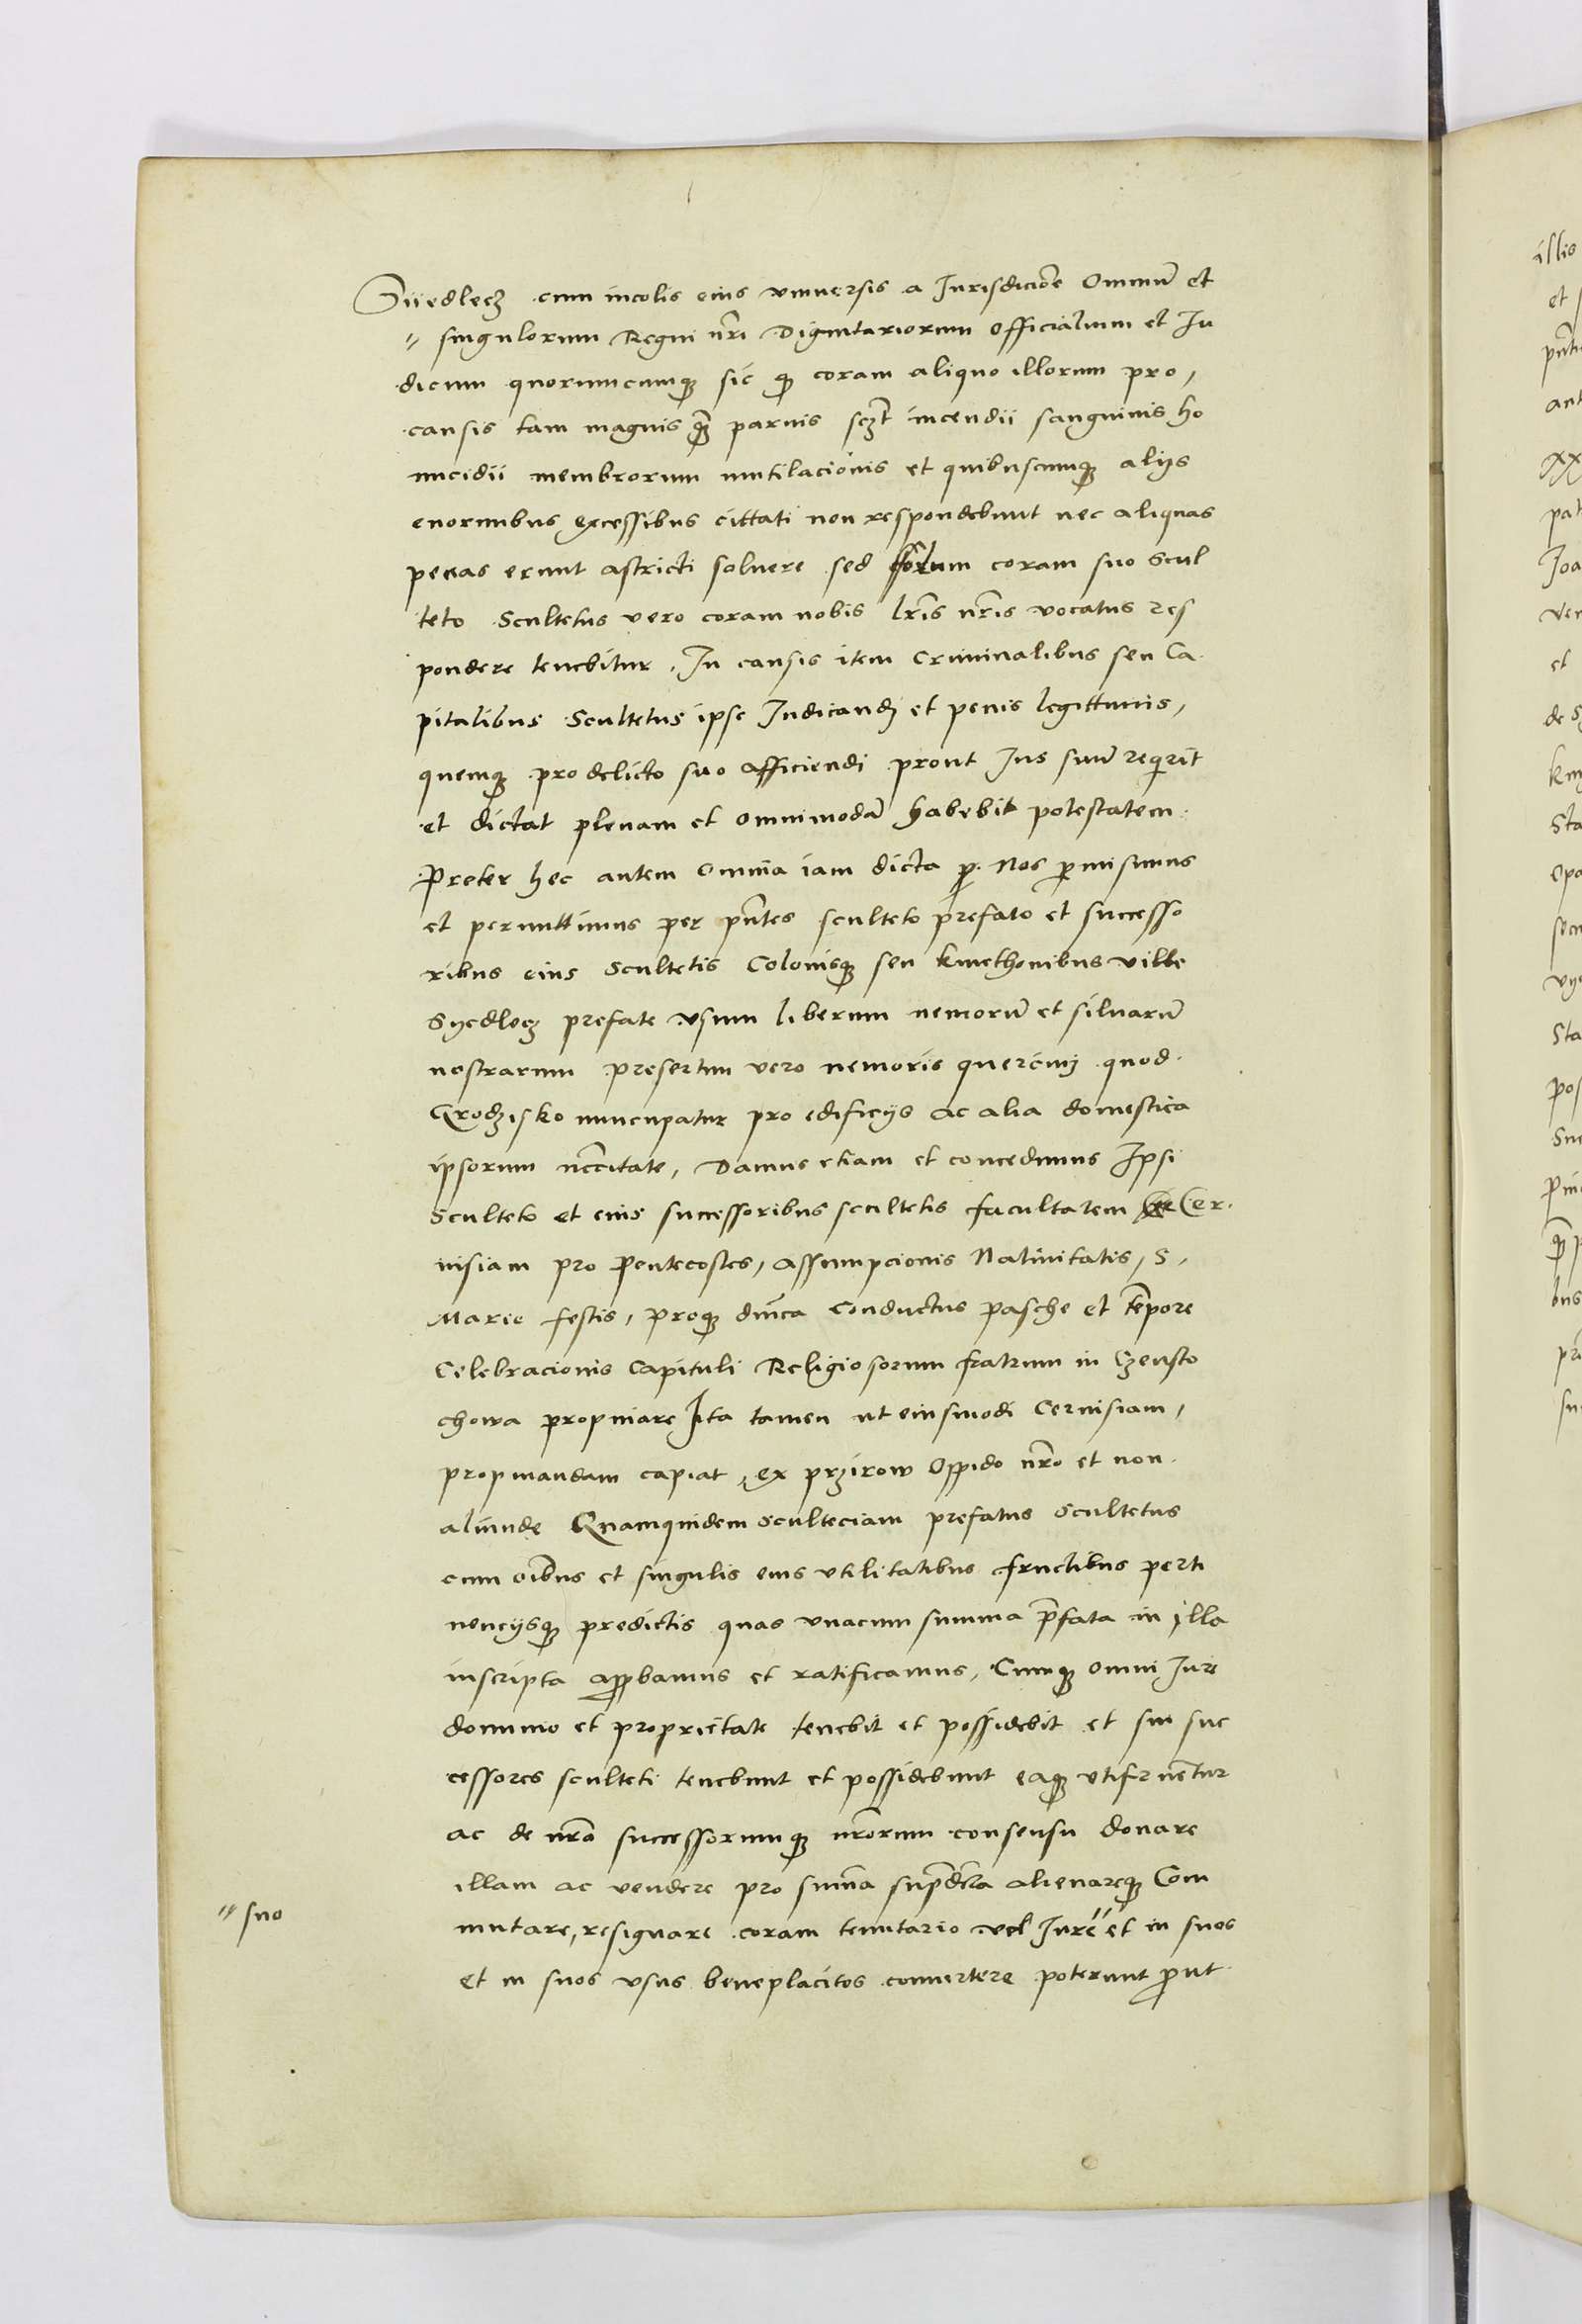 Siiedlecz cum incolis eius vniuersis a Iurisdicio͠e Omniu͠ et
" singulorum Regni n͠ri Dignitariorum Officialium et Iu
dicum quorumcumqꝫ sic ꝙ coram aliquo illorum pro,
causis tam magnis q͠ꝫ paruis scꝫ͠t incendii sanguinis ho
micidii membrorum mutilacionis et quibuscumqꝫ alijs
enormibus excessibus cittati non respondebunt nec aliquas
penas erunt astricti soluere sed solum coram suo Scul
teto Scultetus vero coram nobis l͠ris n͠ris vocatus res
pondere tenebitur, In causis item Criminalibus seu Ca
pitalibus Scultetus ipse Iudicandj et penis legittimis,
quemqꝫ pro delicto suo afficiendi prout Ius suu͠ reqirit
et dictat plenam et omnimoda͠ habebit potestatem.
Preter hec autem Omnia iam dicta ꝑ Nos ꝑmisimus
et permittimus per p͠ntes sculteto prefato et successo
ribus eius Scultetis Colonisqꝫ seu kmethonibus ville
Syedlecz prefate vsum liberum nemoru͠ et siluaru͠
nostrarum presertim vero nemoris quercinj quod
Grodzisko nuncupatur pro edificijs ac alia domestica
ipsorum ne͠ccitate, Damus etiam et concedimus Ipsi
Sculteto et eius successoribus scultetis facultatem Cer
uisiam pro Pentecostes, Assumpcionis Natiuitatis, S,
Marie festis, proqꝫ dni͠ca Conductus pasche et te͠pore
Celebracionis Capituli Religiosorum fratrum in Czensto
chowa propinare Ita tamen ut eiusmodi Ceruisiam,
propinandam capiat, ex przirow Oppido n͠ro et non
aliunde Quamquidem Sculteciam prefatus Scultetus
cum oi͠bus et singulis eius vtilitatibus fructibus perti
nencijsqꝫ predictis quas vnacum summa p͠fata in illa
inscripta app͠robamus et ratificamus, Cumqꝫ omni Iure
dominio et proprietate tenebit et possidebit et sui suc
cessores sculteti tenebunt et possidebunt eaqꝫ vtifrue͠tur
ac de n͠ro successorumqꝫ n͠rorum consensu donare
illam ac vendere pro sum͠a sup͠dcta alienareqꝫ Com
" suo
mutare, resignare coram tenutario vel Iure " et in suos
et in suos vsus beneplacitos conuertere poterunt p͠ut